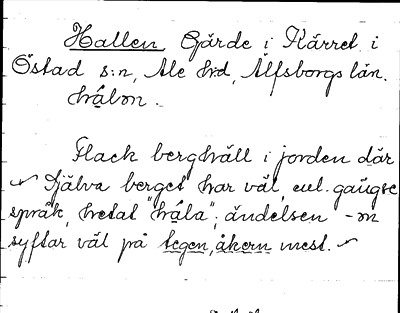 Hallen Gärde i Kärret i
Östad s:n, Ale hd, Älfsborgs län.
hålon.
Flack berghväll i jorden där
själva berget har väl, enl. gängse
språk, hetat "håla"; ändelsen -on
syftar väl på tegen, åkern mest.